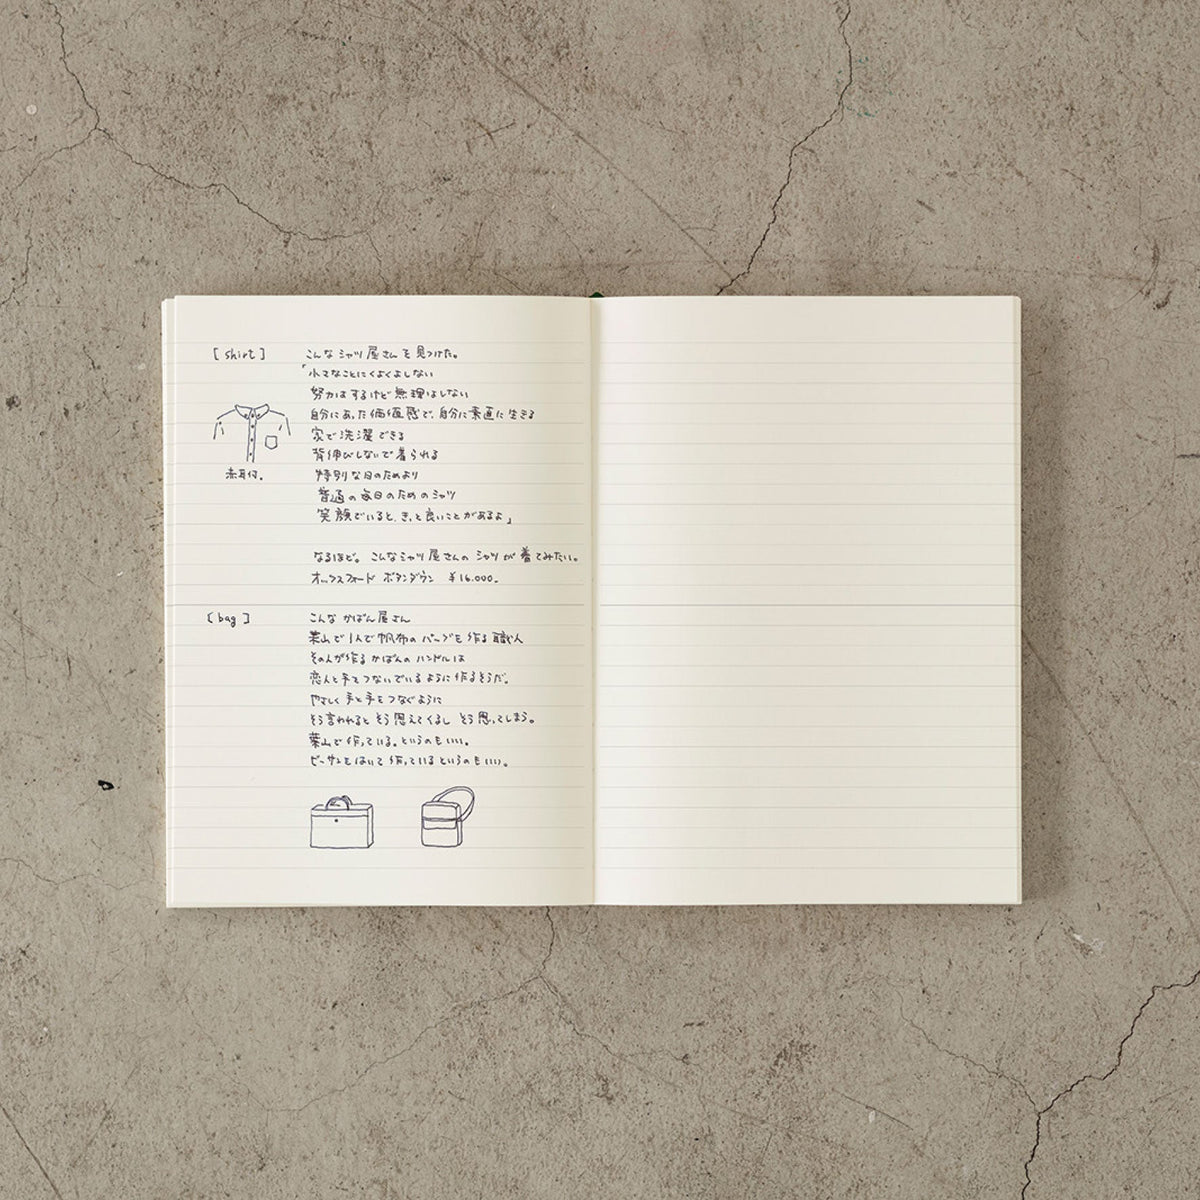 [shirt]
こんなシャツ屋さんを見つけた。
「小さなことにくよくよしない
努力はするけど無理はしない
自分にあった価値感で、自分に素直に生きる
家で洗濯できる
背伸びしないで着られる
特別な日のためより
普通の毎日のためのシャツ
笑顔でいると、きっと良いことがあるよ」
赤耳付。
なるほど。こんなシャツ屋さんのシャツが着てみたい。
オックスフォード ボタンダウン ¥16.000.
[bag]
こんなかばん屋さん
葉山で1人で帆布のバッグを作る職人
その人が作るかばんのハンドルは
恋人と手をつないでいるように作るそうだ。
やさしく手と手をつなぐように
そう言われるとそう思えてくるしそう思ってしまう。
葉山で作っている。というのもいい。
ビーサンをはいて作っているというのもいい。